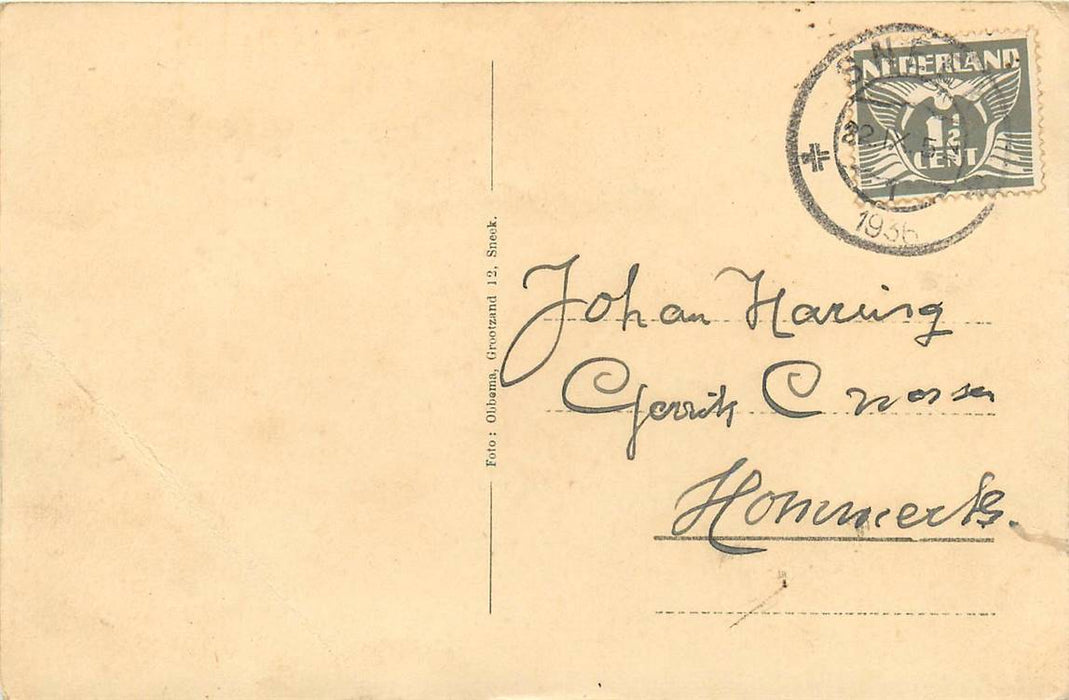 NEDERLAND
1½
CENT
SNEEK
22.IX.
1936
Foto: Obbema, Grootzand 12, Sneek.
Johan Haring
Gerrit
Hommerts.